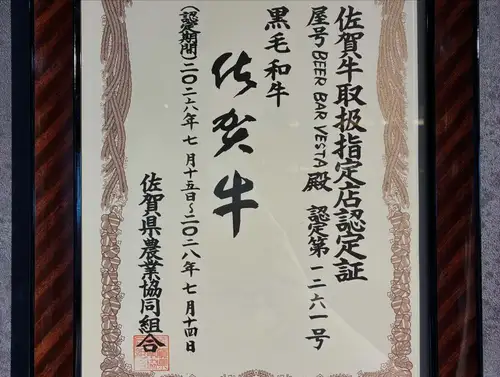 佐賀牛取扱指定店認定証
屋号 BEER BAR VESTA 殿 認定第一二六一号
黒毛和牛
佐賀牛
(認定期間)二〇二六年七月十五日~二〇二八年七月十四日
佐賀県農業協同組合